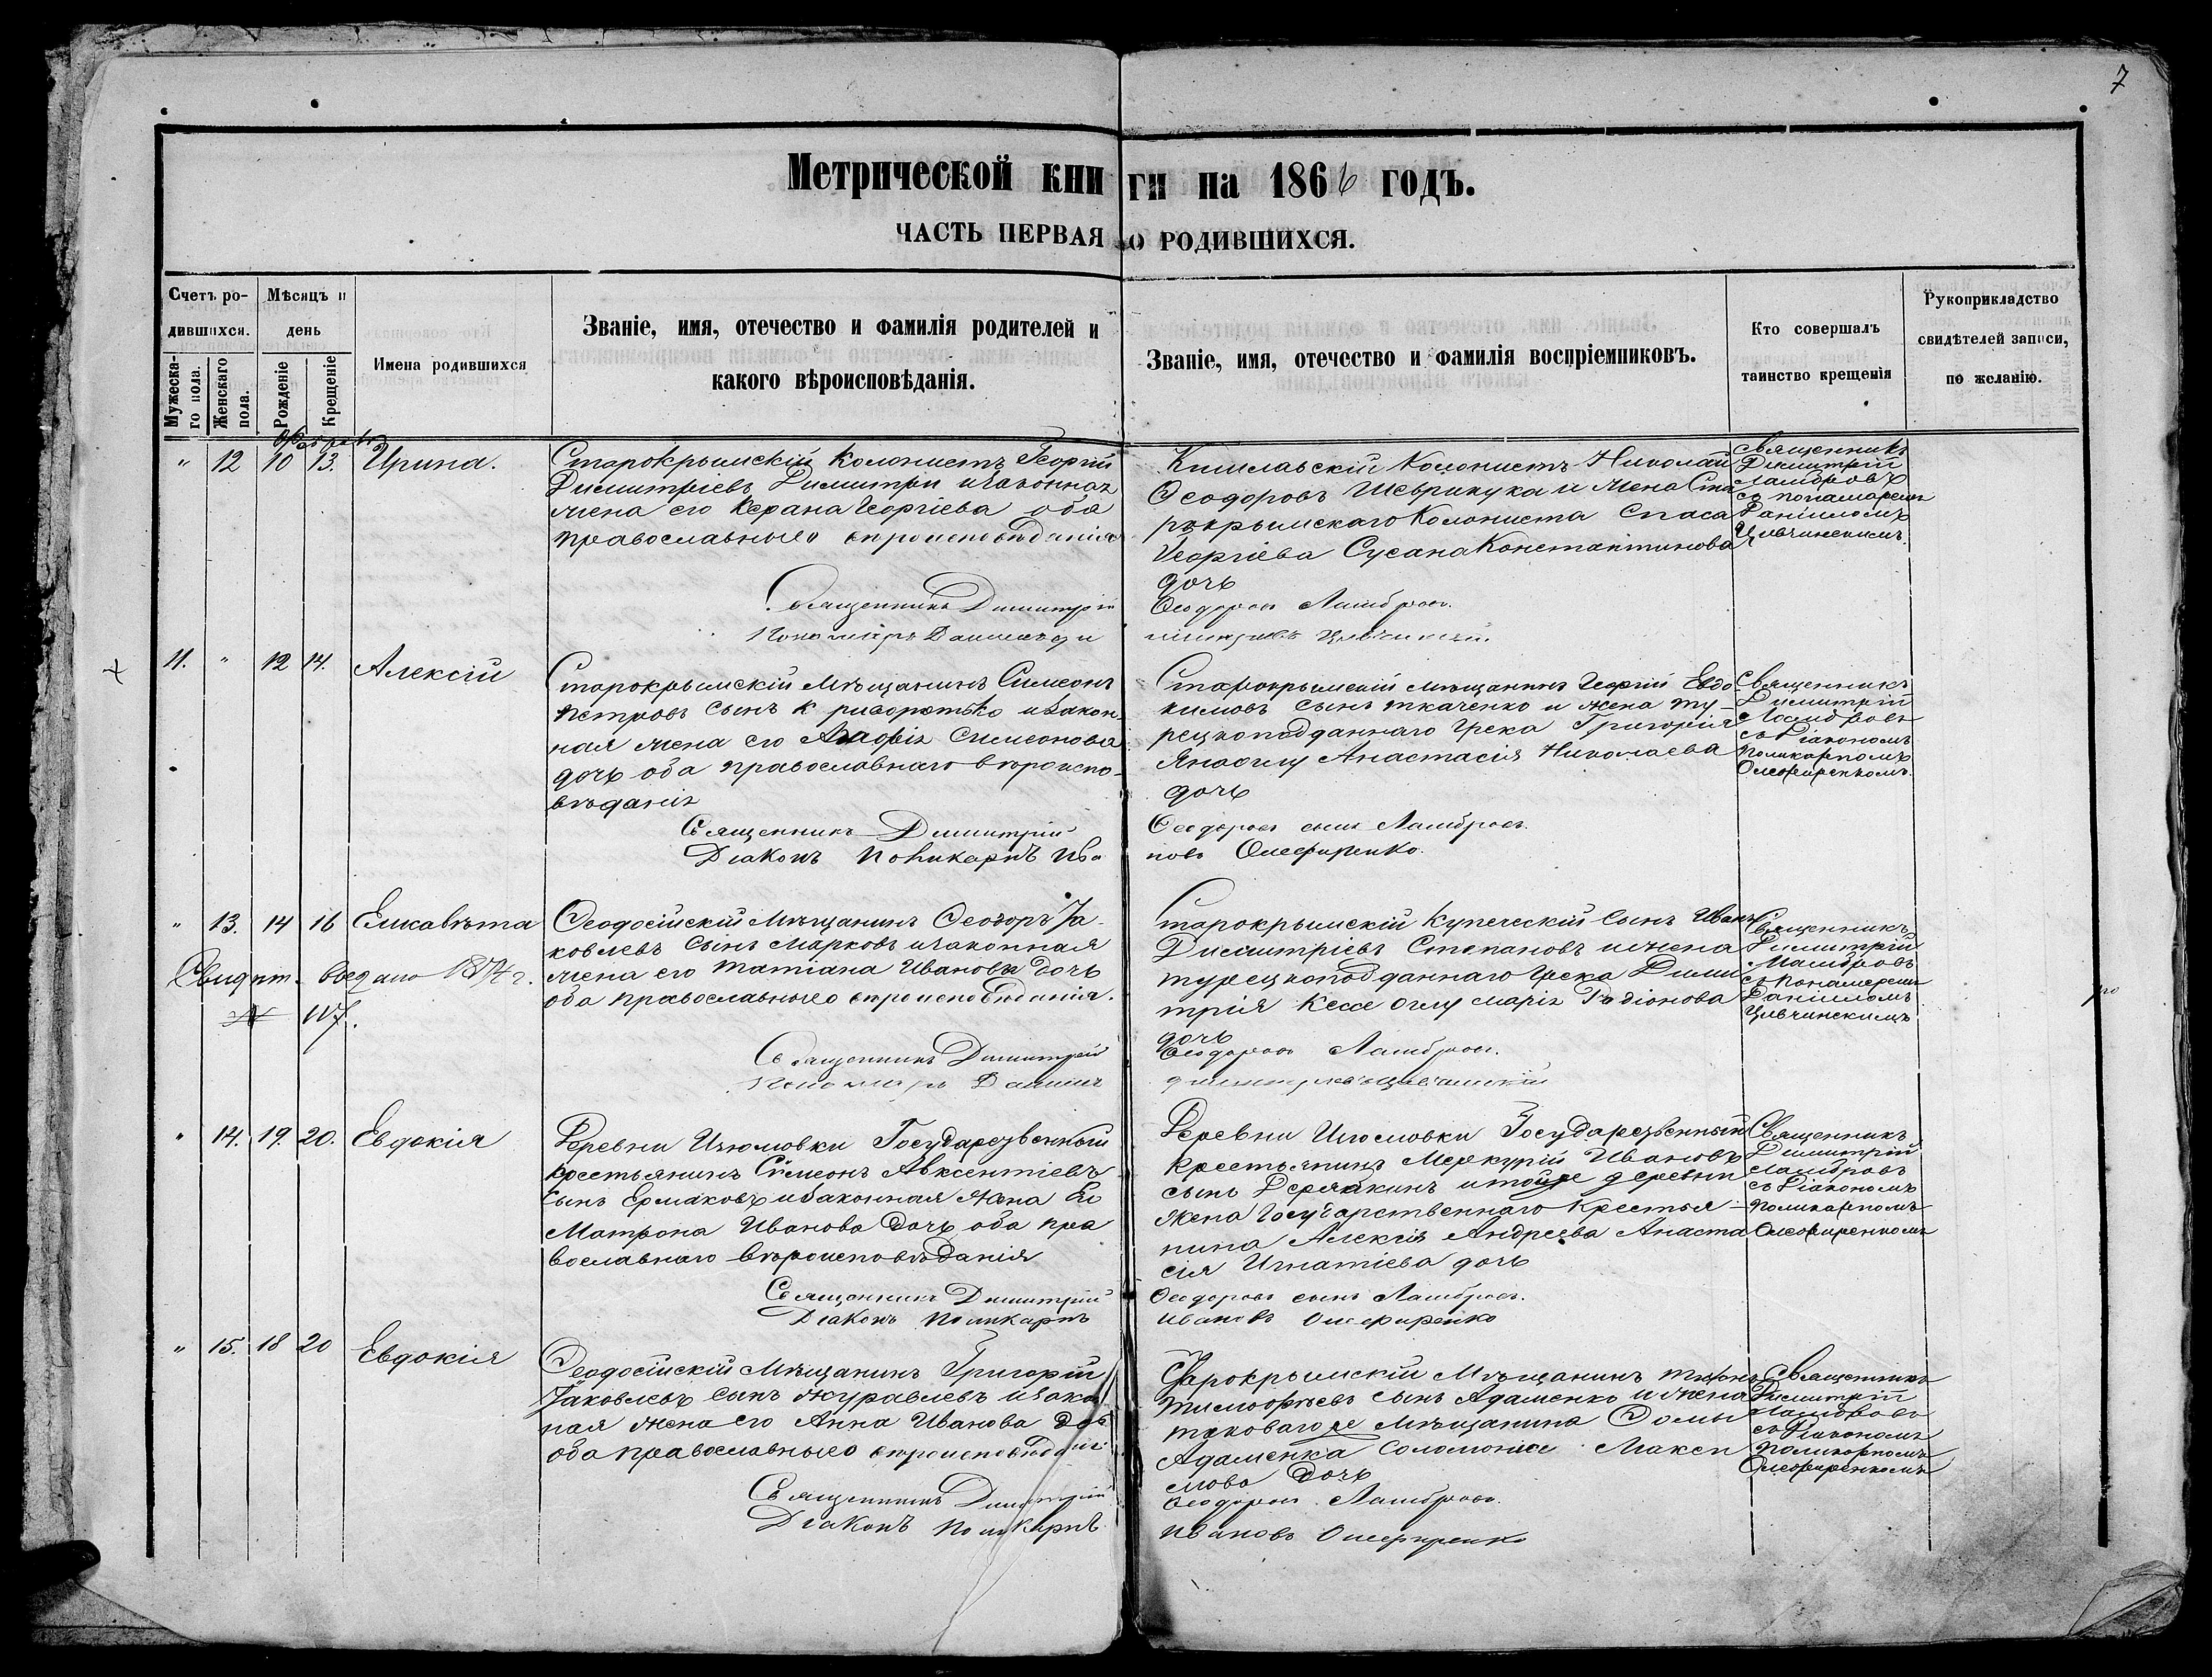 7
Метрической книги на 1866 годъ.
ЧАСТЬ ПЕРВАЯ О РОДИВШИХСЯ.
Счетъ родившихся.
Мужескаго пола.
Женскаго пола.
Мѣсяцъ и день
Рожденіе
Крещеніе
Имена родившихся
Званіе, имя, отечество и фамилія родителей и
какого вѣроисповѣданія.
Званіе, имя, отечество и фамилія воспріемниковъ.
Кто совершалъ
таинство крещенія
Рукоприкладство
свидѣтелей записи,
по желанію.
" 12 10 13. Ирина.
Старокрымскій колонистъ Георгій
Димитріевъ Димитри и законная
жена его Керана Георгіева оба
православнаго вѣроисповѣданія
Кишлавскій Колонистъ Николай
Ѳеодоровъ и жена Ста
рокрымскаго Колониста Спаса
Георгіева Сусана Константинова
дочь
Священникъ
Димитрій
Ламбровъ
съ понамаремъ
Даніиломъ
Цивчинскимъ.
Священникъ Димитрій Ѳеодоровъ Ламбровъ.
Пономарь Даніилъ
11. " 12 14. Алексій
Старокрымскій Мѣщанинъ Симеонъ
Петровъ сынъ и закон
ная жена его Симеонова
дочь оба православнаго вѣроиспо-
вѣданія
Старокрымскій мѣщанинъ Георгій Евдо
кимовъ сынъ Ткаченко и жена ту-
рецкоподданнаго Грека Григорія
Анастасія Николаева
дочь
Священникъ
Димитрій
Ламбровъ
съ Діакономъ
Поликарпомъ
Олефиренкомъ.
Священникъ Димитрій Ѳеодоровъ сынъ Ламбровъ.
Діаконъ Поликарпъ Ивановъ Олефиренко.
" 13. 14 16 Елисавѣта
Ѳеодосійскій Мѣщанинъ Ѳеодоръ Іа
ковлевъ сынъ Марковъ и законная
жена его Татіана Иванова дочь
оба православнаго вѣроисповѣданія.
Свидѣт. выдано 1874 г.
№ 117.
Старокрымскій Купеческій сынъ Иванъ
Димитріевъ Степановъ и жена
турецкоподданнаго Грека Дими
трія Кессе оглу Марія Родіонова
дочь
Священникъ
Димитрій
Ламбровъ
съ понамаремъ
Даніиломъ
Цивчинскимъ
Священникъ Димитрій Ѳеодоровъ Ламбровъ.
Пономарь Даніилъ
" 14. 19. 20. Евдокія
Деревни Изюмовки Государственный
крестьянинъ Симеонъ Авксентіевъ
сынъ Ермаковъ и законная жена Ео
Матрона Иванова дочь оба пра
вославнаго вѣроисповѣданія
Деревни Изюмовки Государственный
Крестьянинъ Меркурій Ивановъ
сынъ и той же деревни
жена Государственнаго Крестья-
нина Алексія Андреева Анаста
сія Игнатіева дочь
Священникъ
Димитрій
Ламбровъ
съ Діакономъ
Поликарпомъ
Олефиренкомъ
Священникъ Димитрій Ѳеодоровъ сынъ Ламбровъ.
Діаконъ Поликарпъ Ивановъ Олефиренко
" 15. 18 20 Евдокія
Ѳеодосійскій Мѣщанинъ Григорій
Іаковлевъ сынъ Журавлевъ и закон
ная жена его Анна Иванова дочь
оба православнаго вѣроисповѣданія
Старокрымскій Мѣщанинъ
Тимофѣевъ сынъ Адаменко и жена
таковаго же Мѣщанина Ѳомы
Адаменка Соломонія Макси
мова дочь
Священникъ
Димитрій
Ламбровъ
съ Діакономъ
Поликарпомъ
Олефиренкомъ
Священникъ Димитрій Ѳеодоровъ Ламбровъ.
Діаконъ Поликарпъ Ивановъ Олефиренко